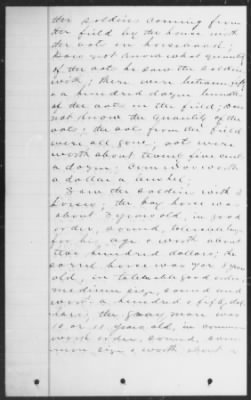 the soldiers coming from
the field by the house with
the oats on horseback; I
does not know what quantity
of the oats he saw the soldiers
with; there were between fifty
& a hundred dozen bundles
of the oats in the field; does
not know the quantity of the
oats; the oats from the field
were all gone; oats were
worth about twenty five cents
a dozen; corn was worth
a dollar a bushel;
I saw the soldiers with
horses; the bay horse was
about 7 years old, in good
order, sound,
for his age & worth about
two hundred dollars; the
sorrel horse was years
old, in tolerable good order,
medium size, sound and
worth a hundred & fifty dol
lars; the gray mare was
10 or 11 years old, in common
order, sound, com
mon size & worth about a